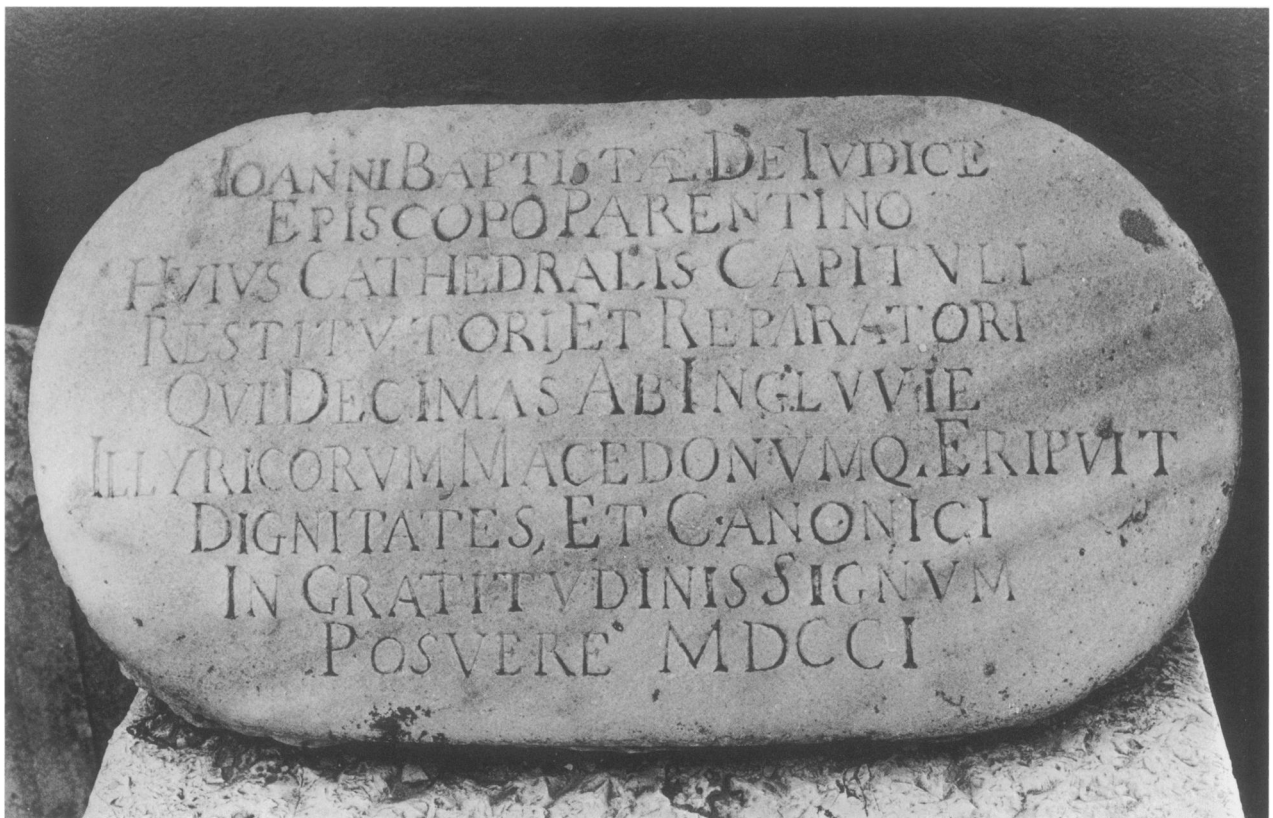 IOANNI BAPTISTÆ DE IVDICE
EPISCOPO PARENTINO
HVIVS CATHEDRALIS CAPITVLI
RESTITVTORI, ET REPARATORI
QVI DECIMAS AB INGLVVIE
ILLYRICORVM, MACEDONVMQ. ERIPVIT
DIGNITATES, ET CANONICI
IN GRATITVDINIS SIGNVM
POSVERE MDCCI